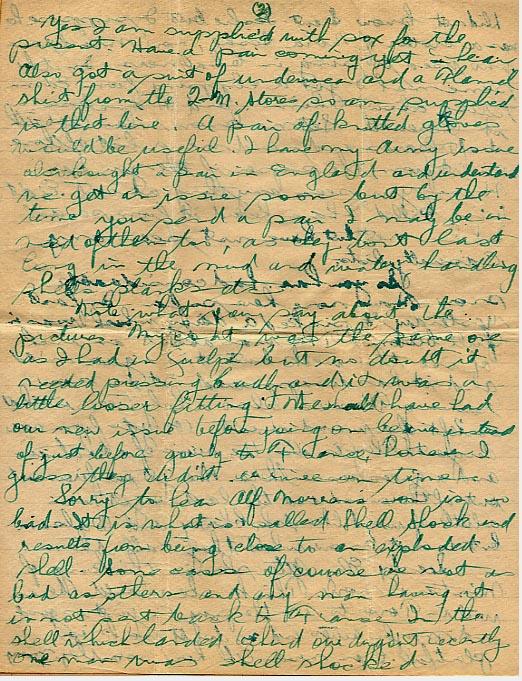 (2)
Yes I am supplied with sox for the
present. Have a pair coming yet I hear
Also got a suit of underwear and a flannel
shirt from the Q-M Stores so am supplied
in that line. A pair of knitted gloves
would be useful. I have my Army issue
also bought a pair in England and understand
we get an issue soon but by the
time you send a pair I may be in
need of them too, as they don't last
long in the mud and water, handling
shells, planks etc.
Note what you say about the
pictures. My coat was the same one
as I had in Guelph but no doubt it
needed pressing badly and it was a
little looser fitting. We should have had
our new issue before going on leave instead
of just before going to France, however I
guess they didn't come in on time.
Sorry to hear Alf son is so
bad. It is what is called Shell Shock and
results from being close to an exploded
shell. Some cases of course is not as
bad as others and any man having it
is not sent back to France. In the
shell which landed behind our dugout recently
one man was shell shocked